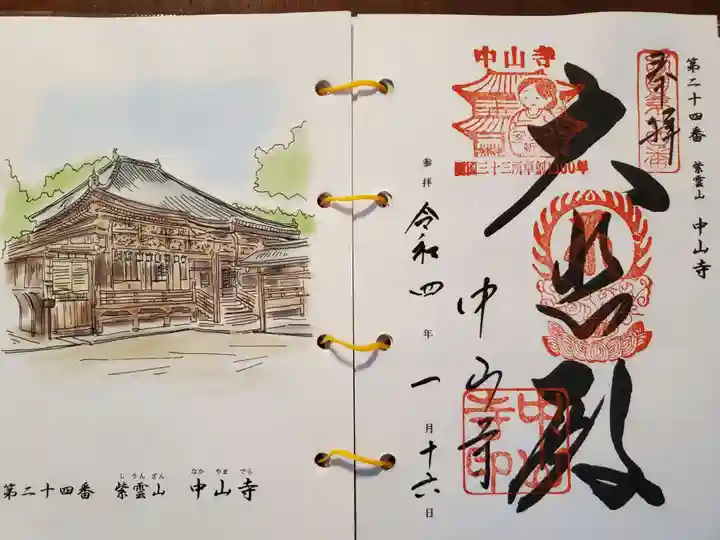 第二十四番 紫雲山 中山寺
奉拝
大悲殿
中山寺
西国三十三所草創1300年
参拝 令和四年一月十六日
中山寺
中山寺印
しうんざん なかやまでら
第二十四番 紫雲山 中山寺